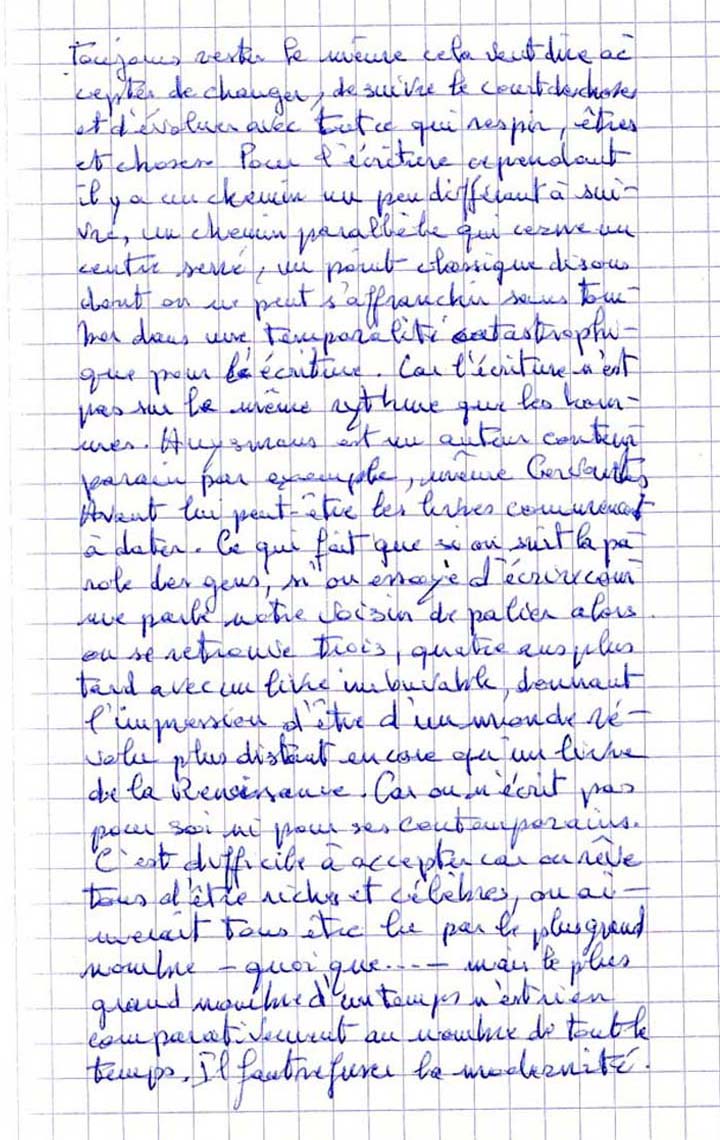 Toujours rester le même cela veut dire ac
cepter de changer, de suivre le court des choses
et d'évoluer avec tout ce qui respir, êtres
et choses. Pour l'écriture cependant
il y a un chemin un peu différent à sui-
vre, un chemin parallèle qui cerne un
centre serré, un point classique disons
dont on ne peut s'affranchir sans tom-
ber dans une temporalité catastrophi-
que pour l'écriture. Car l'écriture n'est
pas sur le même rythme que les hom-
mes. Huysmans est un auteur contem
porain par exemple, même Cervantès
Avant lui peut-être les livres commencent
à dater. Ce qui fait que si on suit la pa
role des gens, si on essaye d'écrire com
me parle notre voisin de palier alors
on se retrouve trois, quatre ans plus
tard avec un livre imbuvable, donnant
l'impression d'être d'un monde ré-
volu plus distant encore qu'un livre
de la Renaissance. Car on n'écrit pas
pour soi ni pour ses contemporains.
C'est difficile à accepter car on rêve
tous d'être riches et célèbres, on ai-
merait tous être lu par le plus grand
nombre - quoi que.... - mais le plus
grand nombre d'un temps n'est rien
comparativement au nombre de tout le
temps. Il faut refuser la modernité.